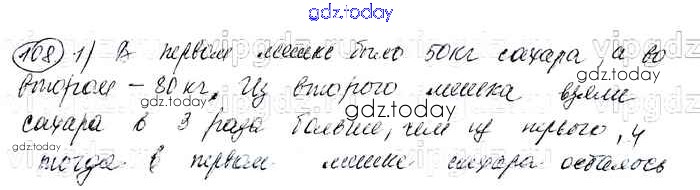 gdz.today
108 1) В первом мешке было 50кг сахара, а во
втором – 80кг. Из второго мешка взяли
gdz.today gdz.today
сахара в 3 раза больше, чем из первого, и
gdz.today gdz.today
тогда в первом мешке сахара осталось